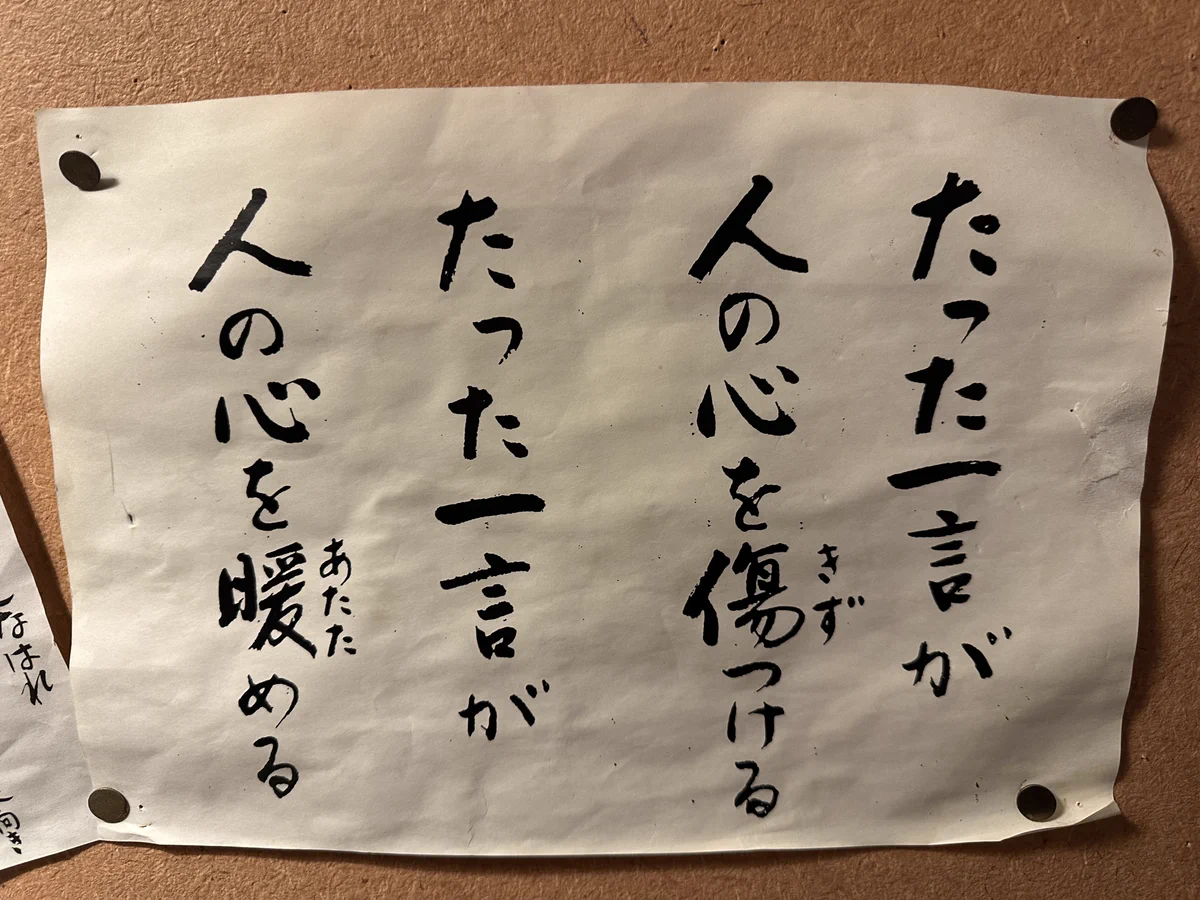 たった一言が
人の心を傷つける
きず
たった一言が
人の心を暖める
あたた
なはれ
向き